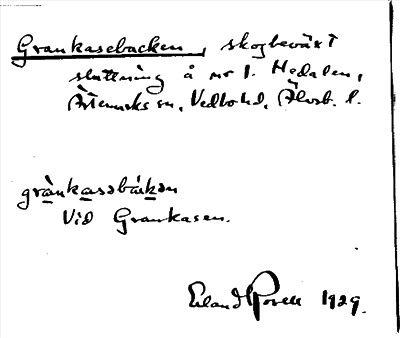 Grankasebacken, skogbeväxt
sluttning å nr 1. Hedalen,
Ärtemarks sn, Vedbo hd, Älvsb. l.
grànkasabàkən
Vid Grankasen.
Erland Rosell 1929.